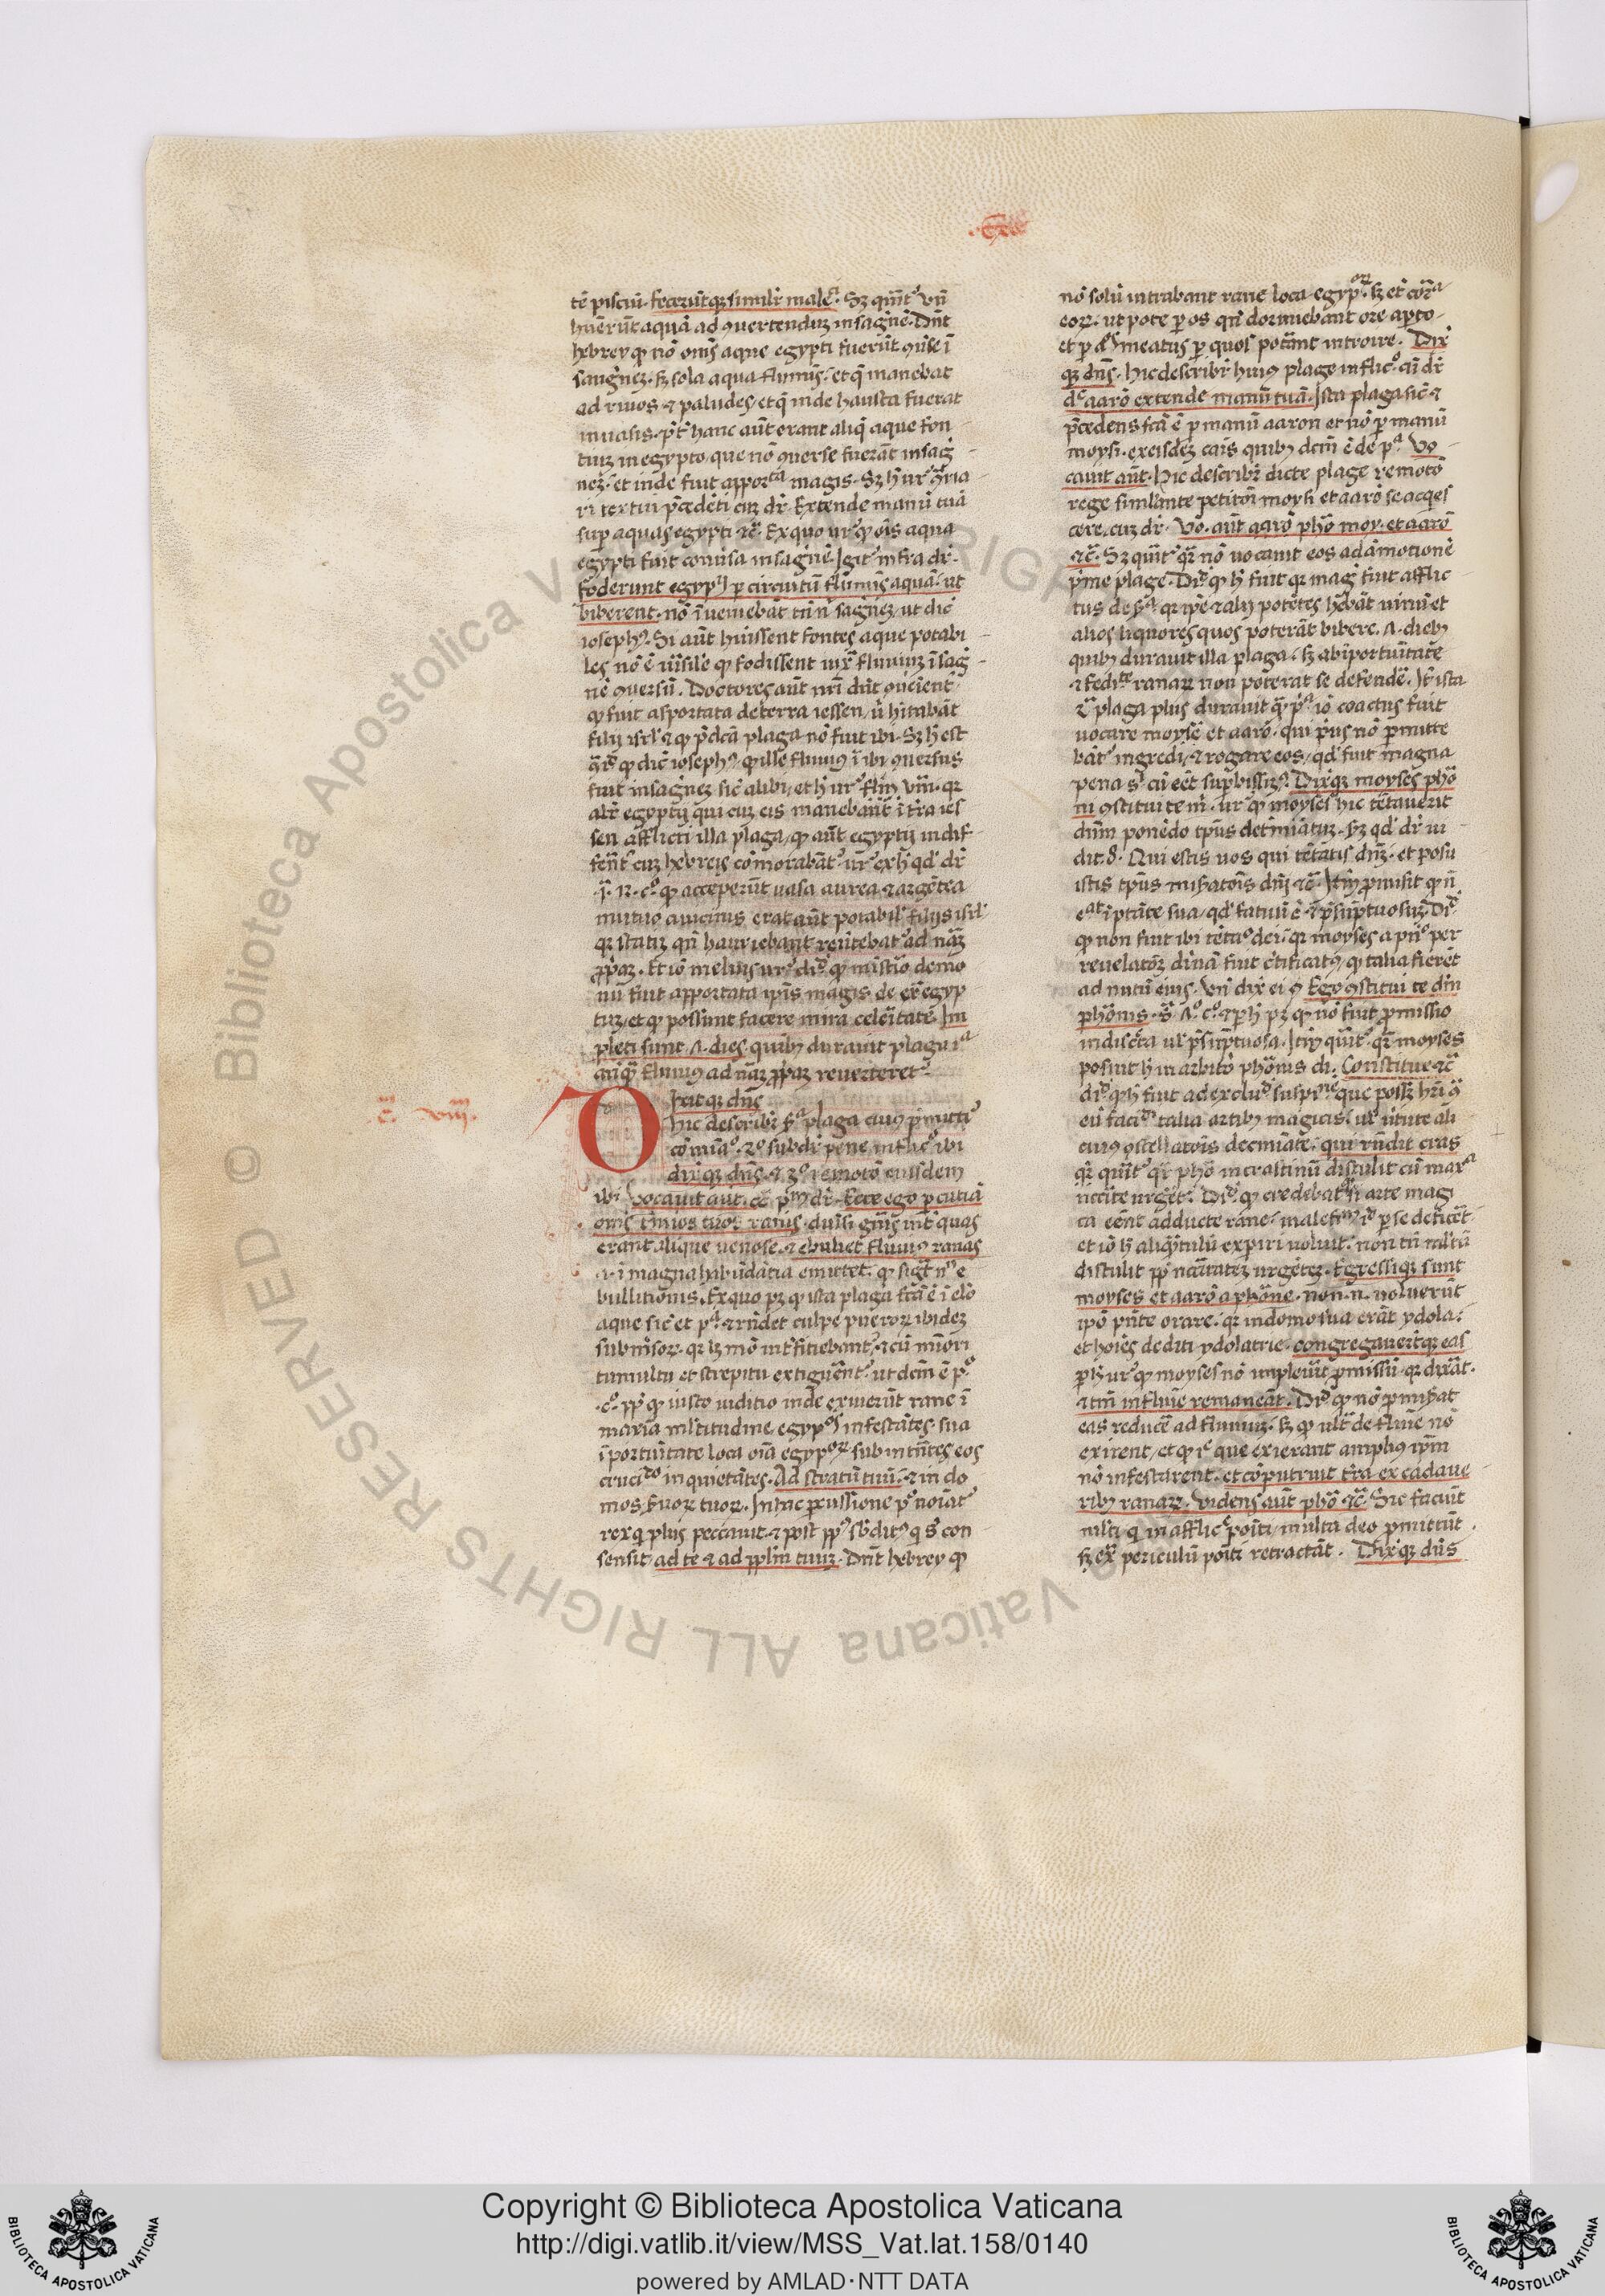 .Exo.
tē pisciū. fecerūtq; simil'r male. Sz quīt' vn̄
huerūt aquā ad ꝯuertenduz in sagīnē. Dn̄t
hebrey qꝫ nō om̄s aque egypti fuerūt ꝯuse ī
sangnez. sz sola aqua flumis. et q̄ manebat
ad riuos ⁊ paludes. et q̄ inde hausta fuerat
in uasis. p̄t' hanc aūt erant aliq̄ aque fon
tiuz in egypto que nō ꝯuerse fuerāt in sag
nez. et inde fuit apporta magis. Sz h̄ ur' ꝯria
ri textui p̄cedēti cuz dr̄. Extende manū tuā
sup aquas egypti ⁊c̄. Ex quo ur' qꝫ oīs aqua
egypti fuit conūsa in sagnē. Igit' infra dr̄.
foderunt egyp' per circuitū flumis aquā. ut
biberent. nō īueniebāt tn̄ n' sagnez. ut dic̄
ioseph'. Si aūt huissent fontes aque potabi
les nō ē uisile qꝫ fodissent iux̄ fluuiuz ī sag
nē ꝯuersū. Doctores aūt nr̄i dn̄t
qꝫ fuit asportata de terra iessen, ū hitabāt
filij isrl' ⁊ qꝫ p̄dc̄a plaga nō fuit ibi. Sz h est
qꝫ dic̄ ioseph'. qꝫ ille fluuiꝰ ī ibi ꝯuersus
fuit in sagnez sic̄ alibi, et h ur' vm̄. qr
alr̄ egyptij qui cuz eis manebānt ī tr̄a ies
sen afflicti illa plaga, qꝫ aūt egyptij indif
fēnt' cuz hebreis comorabāt' ur' ex h qd' dr̄
.ī. 12. c°. qꝫ acceperūt uasa aurea ⁊ argētea
mutuo a uicinis. erat aūt potabil' filijs isrl'
qr statiz qn̄ hauriebant reūtebat' ad naz̄
ꝓpaz. Et iō melius ur' did' qꝫ mīstio demo
nū fuit apportata ip̄is magis de ex̄ egyp
tuz, et qꝫ possunt facere mira celeitate. Im
pleti sunt .ʌ. dies. quibꝫ durauit plagu iᵃ
anqꝫ fluuiꝰ ad naz̄ ꝓpaz reuerteret'.
c̄. viij.
Dixitqꝫ dn̄s
hic describr̄ sᵃ plaga cuiꝰ p̄mitti'
comiāᵒ. 2ᵒ subdr̄ pene inflicᵒ ibi
dixitqꝫ dn̄s. ⁊ 3ᵒ remotō eiusdem
ibi vocauit aut. ⁊c̄ pm dr̄. Ecce ego percutiā
om̄s t'mios tuos ranis. duisi gn̄is int' quas
erant alique uenose. ⁊ ebuliet fluuiꝰ ranas
.ʌ. ī magna habūdātia emittet. qꝫ sigt n' e
bullitionis. Ex quo pz qꝫ ista plaga fc̄a ē ī elō
aque sic̄ et pᵃ. ⁊ rn̄det culpe pueroꝝ ibidez
submsoꝝ. qr hꝫ mō int'ficiebant', ⁊ cū minori
tumultu et strepitu extiguēnt' ut dcm̄ ē pᵒ
.cᵒ. ꝓp' qꝫ iusto iuditio inde exiuerūt rane ī
maxīa ml'titudine egyp' infestātes. sua
īportūitate loca oīa egypoꝝ subintn̄tes, eos
crucito inquietātes. Ad stratū tuū. ⁊ in do
mos suoꝝ tuoꝝ. In hac percussione pᵒ noīat'
rex q plus peccauit. ⁊ post ppᵒ sbditꝰ q s' con
sensit. ad te ⁊ ad pplm̄ tuuz. Dn̄t hebrey qꝫ
nō solū intrabant rane loca egypoꝝ. sz et cor̄ᵃ
eoꝝ. ut pote per os qn̄ dormiebant ore aperto
et per meatus per quos potāt introire. Dix̄
qꝫ dn̄s. hic describr̄ huiꝰ plage inflicᵒ. cū dr̄
dᶜ aarō extende manū tuā. Ista plaga sic̄ ⁊
p̄cedens fcā ē per manū aaron et nō per manū
moysi. ex eisdez cāis quibꝫ dcm̄ ē de pᵃ. Vo
cauit aūt. hic describr̄ dicte plage remotō
rege simlante petitōꝫ moysi et aarō se acqes
cere. cuz dr̄. Vo. aūt aarō phō moy. et aarō
⁊c̄. Sz quīt' qr̄ nō uocauit eos ad amotionē
p̄me plage. Dd' qꝫ h fuit qr mag' fuit afflic
tus de sᵃ qr ip̄e ⁊ alij potētes hēbāt uinū et
alios liquores quos poterāt bibere .ʌ. diebꝫ
quibꝫ durauit illa plaga. sz ab īportuītate
⁊ feditte ranaꝝ non poterat se defendē. It ista
plaga plus durauit q̄ pᵃ. iō coactus fuit
uocare moysē et aarō. qui priꝰ nō permitte
bāt' ingredi, ⁊ rogare eos, qd' fuit magna
pena s' cū eēt supbissiꝰ. Dixitqꝫ moyses phō
ni ꝯstitui te m̄. ur' qꝫ moyses hic tētauerit
dn̄m ponēdo tpus determiatuz. sz qd' dr̄ iu
dit. 8. Qui estis uos qui tētatis dn̄z. et posu
istis tpus misatōis dn̄i ⁊c̄. It ꝓmisit qꝫ n̄
eat ī ptate sua, qd' fatuū ē ⁊ p̄sūptuosuz. Dd'
qꝫ non fuit ibi tētaᵒ dei. qr moyses a pnᵒ per
reuelatōz diuā fuit certificatꝰ, qꝫ talia fierēt
ad nutū eius. vn̄ dix̄ ei ꝰ Ego ꝯstitui te dm̄
phōnis. s .7. cᵒ. ⁊ per h pz qꝫ nō fuit ꝓmissio
indiscta ul' p̄sūptuosa. Itꝫ quīt'. qr̄ moyses
posuit h in arbitrō phōnis di. Constitue ⁊c̄
did' qꝫ h fuit ad exclud' suspiōnē que possꝫ hr̄i q̄
eū faced' talia artibꝫ magicis, ul' uirtute ali
cuiꝰ ꝯstellatōis determiate. qui rn̄dit cras
qr quīt' qr̄ phō in crastinū distulit cū maxᵃ
nccite urgēt'. Dd' qꝫ credebat si arte magi
ca eēnt adducte rane. male iᵒ per se deficēt
et iō h aliqntulū expiri uoluit. non tn̄
distulit ꝓp nc̄citatez urgētez. Egressiqꝫ sunt
moyses et aarō a phōne. non .n. uoluerūt
ip̄o pn̄te orare. qr in domo sua erāt ydola.
et hoiēs dediti ydolatrie. congregauer̄tqꝫ eas
per h ur' qꝫ moyses nō impleuit ꝓmissū. qr dixāt
⁊ tm̄ in fluuie remaneāt. Dd' qꝫ nō ꝓmisat
eas reducē ad fluuiuz. sz qꝫ ult' de fluuie nō
exirent, et qꝫ iᵉ que exierant amplius ip̄m
nō infestarent. et cōputruit tr̄a ex cadaue
ribꝫ ranaꝝ. Videns aūt phō ⁊c̄. Sic faciūt
ml'ti q in afflicᵉ poīti, multa deo ꝓmittūt
sz ex̄ periculū poīti retractāt. Dixitqꝫ dn̄s
Biblioteca Apostolica Vaticana ALL RIGHTS RESERVED ©
Copyright © Biblioteca Apostolica Vaticana
http://digi.vatlib.it/view/MSS_Vat.lat.158/0140
powered by AMLAD·NTT DATA
BIBLIOTECA APOSTOLICA VATICANA
BIBLIOTECA APOSTOLICA VATICANA